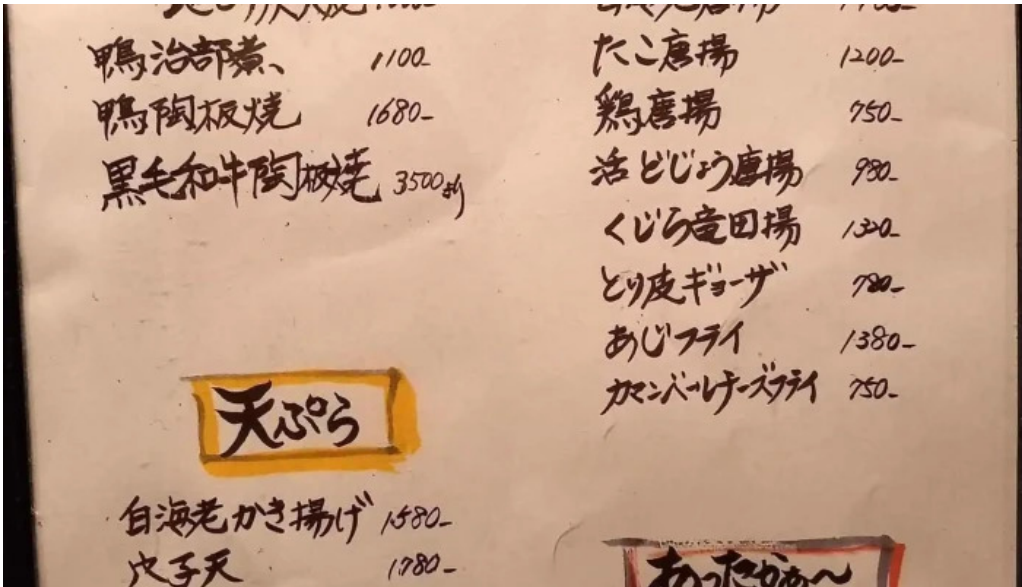 鴨治部煮 1100-
鴨陶板焼 1680-
黒毛和牛陶板焼 3500より
天ぷら
白海老かき揚げ 1580-
穴子天 1780-
たこ唐揚 1200-
鶏唐揚 750-
活どじょう唐揚 980-
くじら竜田揚 1320-
とり皮ギョーザ 780-
あじフライ 1380-
カマンベールチーズフライ 750-
あったかぁ〜